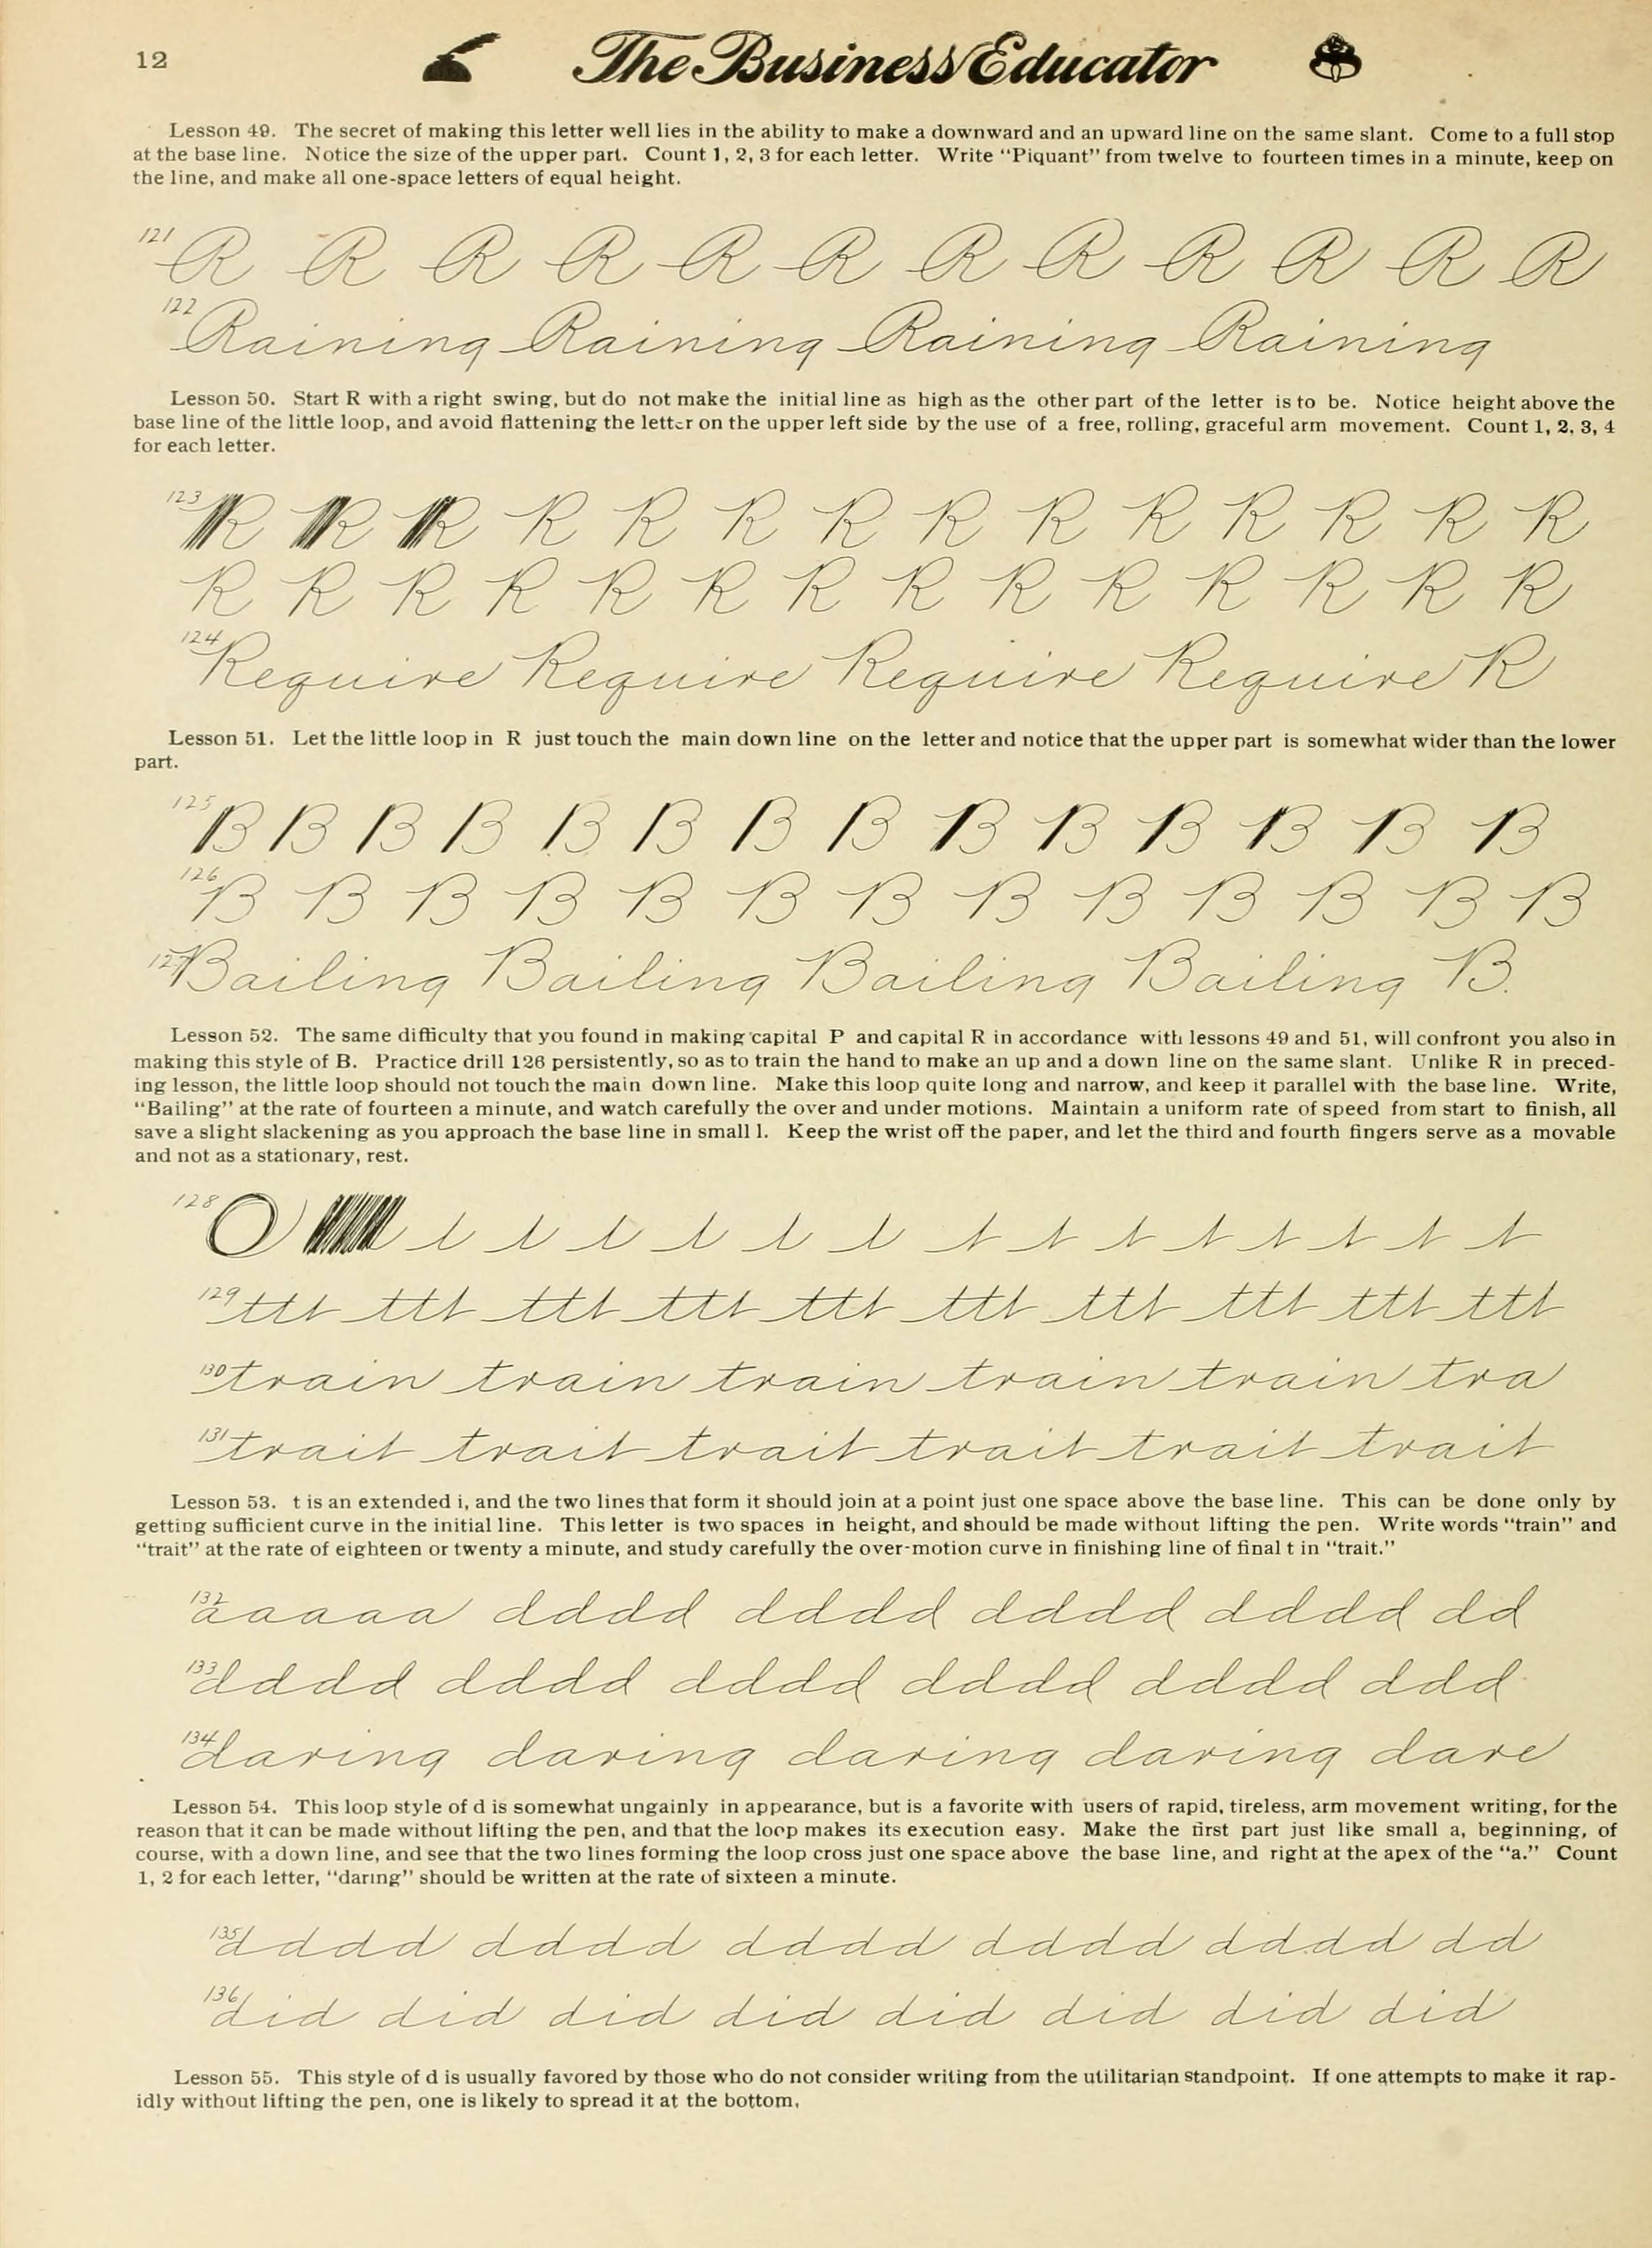 12
The Business Educator
Lesson 49. The secret of making this letter well lies in the ability to make a downward and an upward line on the same slant. Come to a full stop
at the base line. Notice the size of the upper part. Count 1, 2, 3 for each letter. Write "Piquant" from twelve to fourteen times in a minute, keep on
the line, and make all one-space letters of equal height.
121 R R R R R R R R R R R R
122 Raining Raining Raining Raining
Lesson 50. Start R with a right swing, but do not make the initial line as high as the other part of the letter is to be. Notice height above the
base line of the little loop, and avoid flattening the letter on the upper left side by the use of a free, rolling, graceful arm movement. Count 1, 2, 3, 4
for each letter.
123 R R R R R R R R R R R R R R
R R R R R R R R R R R R R R
124 Require Require Require Require R
Lesson 51. Let the little loop in R just touch the main down line on the letter and notice that the upper part is somewhat wider than the lower
part.
125 B B B B B B B B B B B B B B
126 B B B B B B B B B B B B B
127 Bailing Bailing Bailing Bailing B.
Lesson 52. The same difficulty that you found in making capital P and capital R in accordance with lessons 49 and 51, will confront you also in
making this style of B. Practice drill 126 persistently, so as to train the hand to make an up and a down line on the same slant. Unlike R in preced-
ing lesson, the little loop should not touch the main down line. Make this loop quite long and narrow, and keep it parallel with the base line. Write,
"Bailing" at the rate of fourteen a minute, and watch carefully the over and under motions. Maintain a uniform rate of speed from start to finish, all
save a slight slackening as you approach the base line in small l. Keep the wrist off the paper, and let the third and fourth fingers serve as a movable
and not as a stationary, rest.
128 O t t t t t t t t t t t t t t
129 ttt ttt ttt ttt ttt ttt ttt ttt ttt ttt
130 train train train train train tra
131 trait trait trait trait trait trait
Lesson 53. t is an extended i, and the two lines that form it should join at a point just one space above the base line. This can be done only by
getting sufficient curve in the initial line. This letter is two spaces in height, and should be made without lifting the pen. Write words "train" and
"trait" at the rate of eighteen or twenty a minute, and study carefully the over-motion curve in finishing line of final t in "trait."
132 aaaaa dddd dddd dddd dddd dd
133 dddd dddd dddd dddd dddd ddd
134 daring daring daring daring dare
Lesson 54. This loop style of d is somewhat ungainly in appearance, but is a favorite with users of rapid, tireless, arm movement writing, for the
reason that it can be made without lifting the pen, and that the loop makes its execution easy. Make the first part just like small a, beginning, of
course, with a down line, and see that the two lines forming the loop cross just one space above the base line, and right at the apex of the "a." Count
1, 2 for each letter, "daring" should be written at the rate of sixteen a minute.
135 dddd dddd dddd dddd dddd dd
136 did did did did did did did did
Lesson 55. This style of d is usually favored by those who do not consider writing from the utilitarian standpoint. If one attempts to make it rap-
idly without lifting the pen, one is likely to spread it at the bottom,